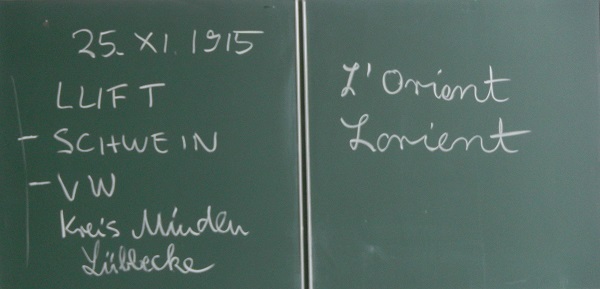 25. XI. 1915
LLIFT
- SCHWEIN
- VW
Kreis Minden
Lübbecke
L'Orient
Lorient